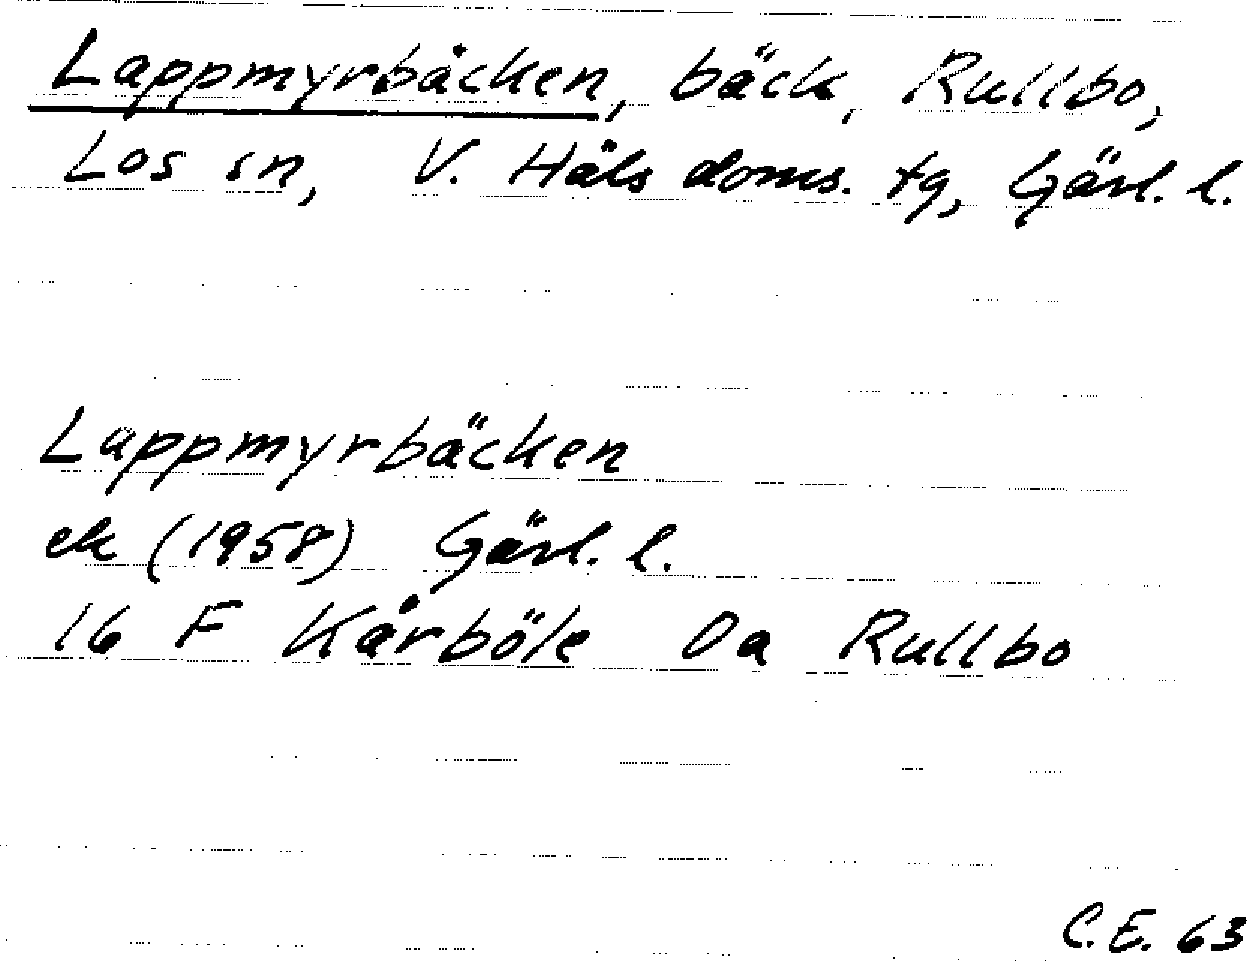 Lappmyrbäcken, bäck, Rullbo,
Los sn, V. Häls doms. tg, Gävl. l.
Lappmyrbäcken
ek (1958) Gävl. l.
16 F Kårböle Da Rullbo
C.E. 63